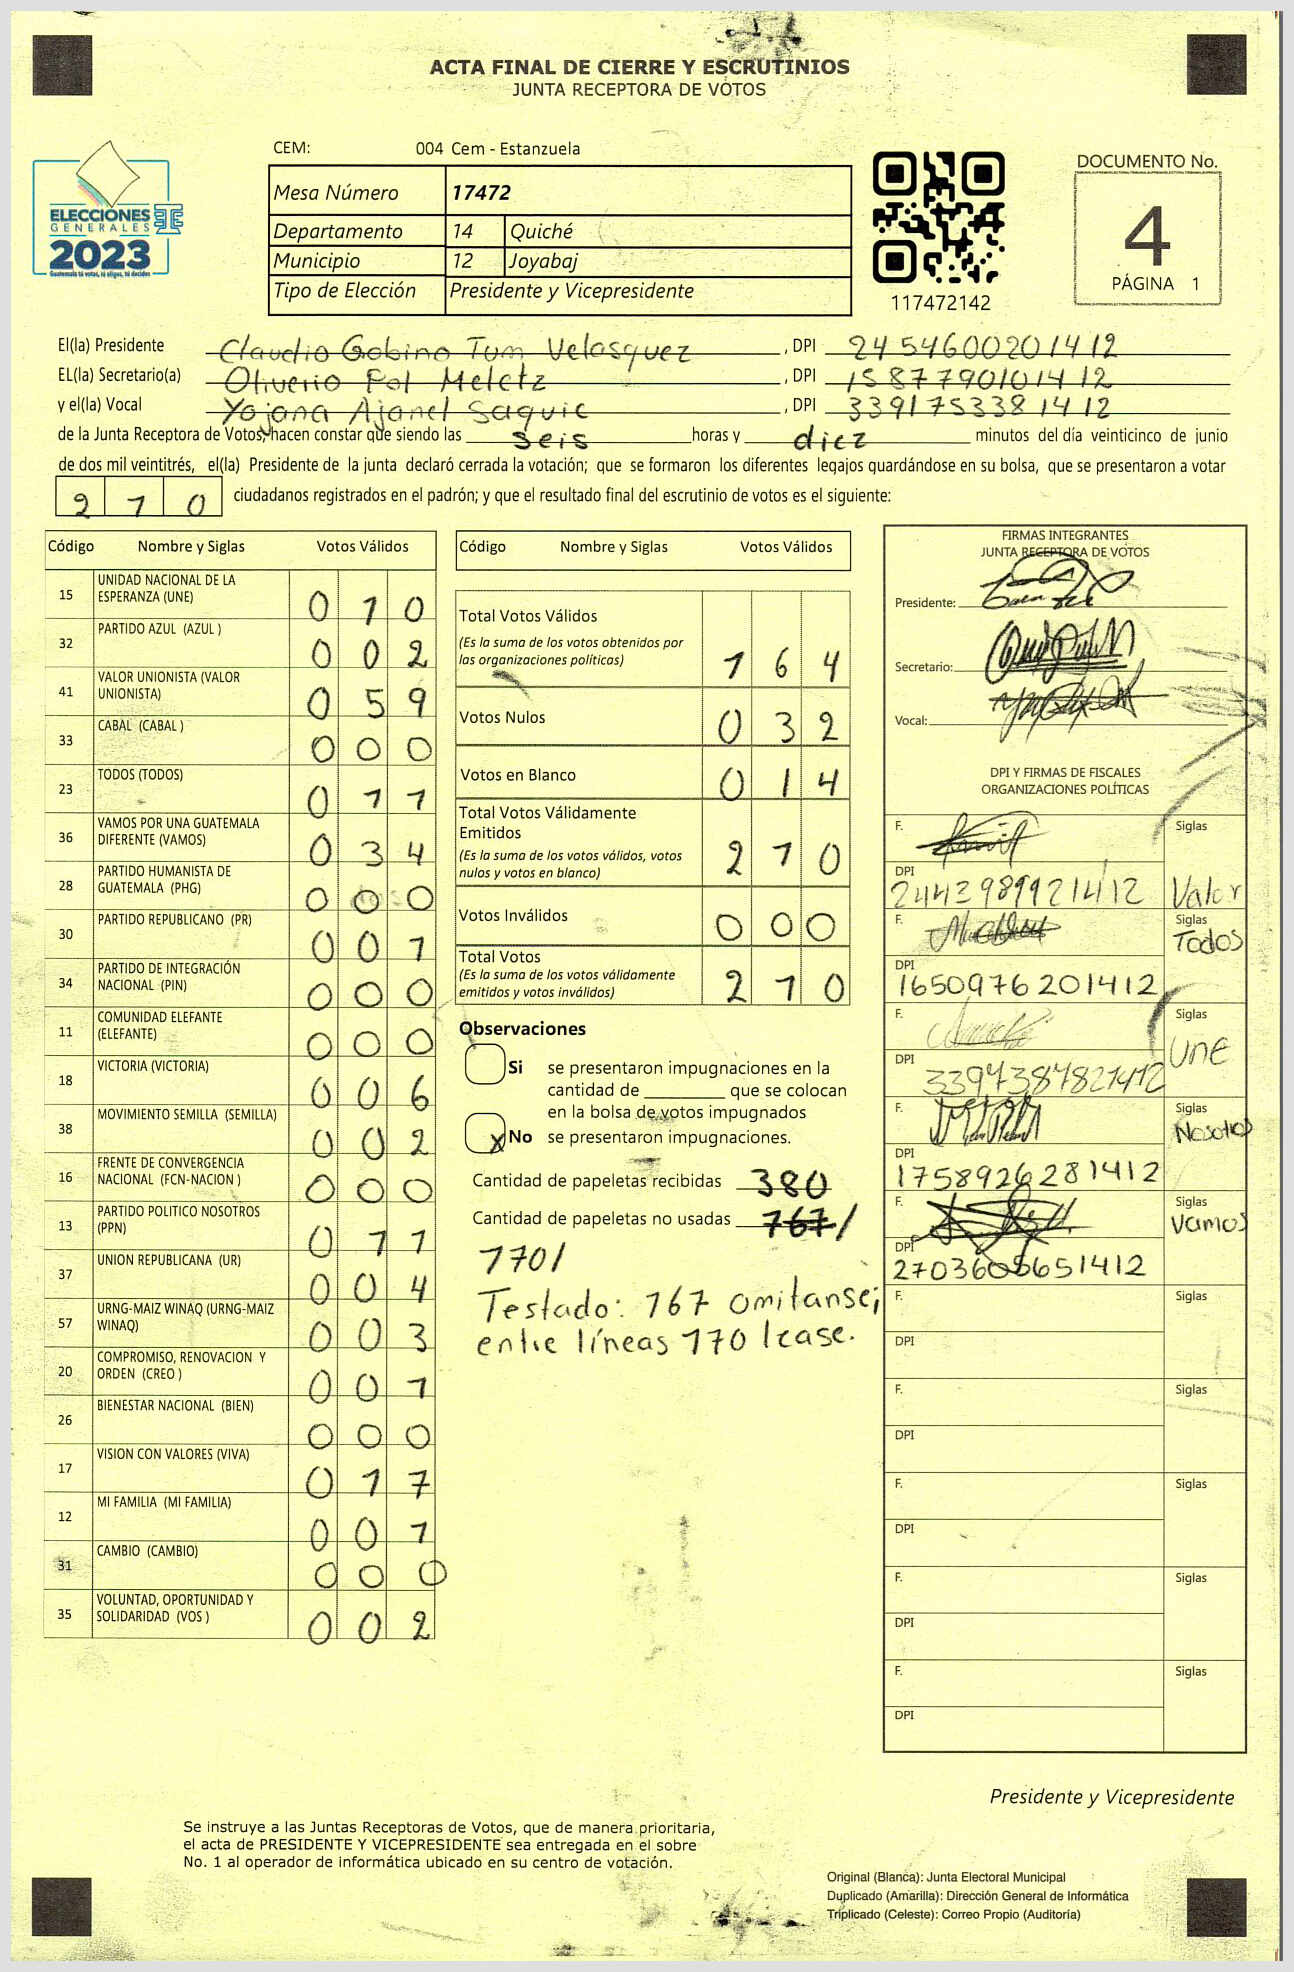 ACTA FINAL DE CIERRE Y ESCRUTINIOS
JUNTA RECEPTORA DE VOTOS
ELECCIONES
GENERALES
2023
Guatemala tú votas, tú eliges, tú decides
CEM: 004 Cem - Estanzuela
Mesa Número 17472
Departamento 14 Quiché
Municipio 12 Joyabaj
Tipo de Elección Presidente y Vicepresidente
117472142
DOCUMENTO No.
4
PÁGINA 1
El(la) Presidente Claudio Gobino Tum Velasquez , DPI 2454600201412
EL(la) Secretario(a) Oliverio Pol Meletz , DPI 1587790101412
y el(la) Vocal Yojana Ajanel Saquic , DPI 3391753381412
de la Junta Receptora de Votos, hacen constar que siendo las seis horas y diez minutos del día veinticinco de junio
de dos mil veintitrés, el(la) Presidente de la junta declaró cerrada la votación; que se formaron los diferentes legajos guardándose en su bolsa, que se presentaron a votar
210 ciudadanos registrados en el padrón; y que el resultado final del escrutinio de votos es el siguiente:
Código Nombre y Siglas Votos Válidos
15 UNIDAD NACIONAL DE LA ESPERANZA (UNE) 010
32 PARTIDO AZUL (AZUL ) 002
41 VALOR UNIONISTA (VALOR UNIONISTA) 059
33 CABAL (CABAL ) 000
23 TODOS (TODOS) 011
36 VAMOS POR UNA GUATEMALA DIFERENTE (VAMOS) 034
28 PARTIDO HUMANISTA DE GUATEMALA (PHG) 000
30 PARTIDO REPUBLICANO (PR) 001
34 PARTIDO DE INTEGRACIÓN NACIONAL (PIN) 000
11 COMUNIDAD ELEFANTE (ELEFANTE) 000
18 VICTORIA (VICTORIA) 006
38 MOVIMIENTO SEMILLA (SEMILLA) 002
16 FRENTE DE CONVERGENCIA NACIONAL (FCN-NACION ) 000
13 PARTIDO POLITICO NOSOTROS (PPN) 011
37 UNION REPUBLICANA (UR) 004
57 URNG-MAIZ WINAQ (URNG-MAIZ WINAQ) 003
20 COMPROMISO, RENOVACION Y ORDEN (CREO ) 001
26 BIENESTAR NACIONAL (BIEN) 000
17 VISION CON VALORES (VIVA) 017
12 MI FAMILIA (MI FAMILIA) 001
31 CAMBIO (CAMBIO) 000
35 VOLUNTAD, OPORTUNIDAD Y SOLIDARIDAD (VOS ) 002
Código Nombre y Siglas Votos Válidos
Total Votos Válidos 164
(Es la suma de los votos obtenidos por
las organizaciones políticas)
Votos Nulos 032
Votos en Blanco 014
Total Votos Válidamente
Emitidos 210
(Es la suma de los votos válidos, votos
nulos y votos en blanco)
Votos Inválidos 000
Total Votos 210
(Es la suma de los votos válidamente
emitidos y votos inválidos)
Observaciones
Si se presentaron impugnaciones en la
cantidad de ________ que se colocan
en la bolsa de votos impugnados
x No se presentaron impugnaciones.
Cantidad de papeletas recibidas 380
Cantidad de papeletas no usadas 167/
170/
Testado: 167 omitanse;
entre líneas 170 lease.
FIRMAS INTEGRANTES
JUNTA RECEPTORA DE VOTOS
Presidente:
Secretario:
Vocal:
DPI Y FIRMAS DE FISCALES
ORGANIZACIONES POLÍTICAS
F. Siglas
DPI
2443989921412 Valor
F. Siglas
Todos
DPI
1650976201412
F. Siglas
UNE
DPI
3397387821412
F. Siglas
Nosotros
DPI
1758926281412
F. Siglas
Vamos
DPI
2703605651412
F. Siglas
DPI
F. Siglas
DPI
F. Siglas
DPI
F. Siglas
DPI
F. Siglas
DPI
Presidente y Vicepresidente
Se instruye a las Juntas Receptoras de Votos, que de manera prioritaria,
el acta de PRESIDENTE Y VICEPRESIDENTE sea entregada en el sobre
No. 1 al operador de informática ubicado en su centro de votación.
Original (Blanca): Junta Electoral Municipal
Duplicado (Amarilla): Dirección General de Informática
Triplicado (Celeste): Correo Propio (Auditoría)